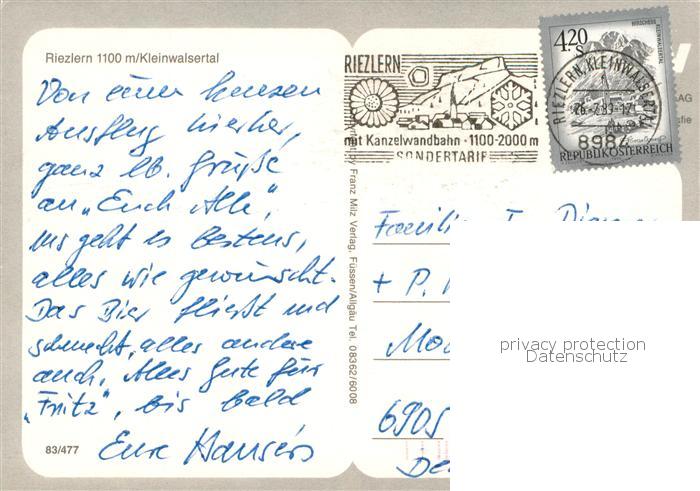 Riezlern 1100 m/Kleinwalsertal
Von einem kurzen
Ausflug hierher,
ganz lb. Grüße
an "Euch Alle",
uns geht es bestens,
alles wie gewünscht.
Das Bier fließt und
schmeckt, alles andere
auch. Alles Gute für
"Fritz", bis bald
Eure Hansers
83/477
RIEZLERN
mit Kanzelwandbahn · 1100-2000 m
SONDERTARIF
4,20
S
HIRSCHEGG
KLEINWALSERTAL
REPUBLIK ÖSTERREICH
RIEZLERN, KLEINWALSERTAL
26.-7.83-17
898
Franz Milz Verlag, Füssen/Allgäu Tel. 08362/6008
AG
Familie
+ P.
6905
privacy protection
Datenschutz